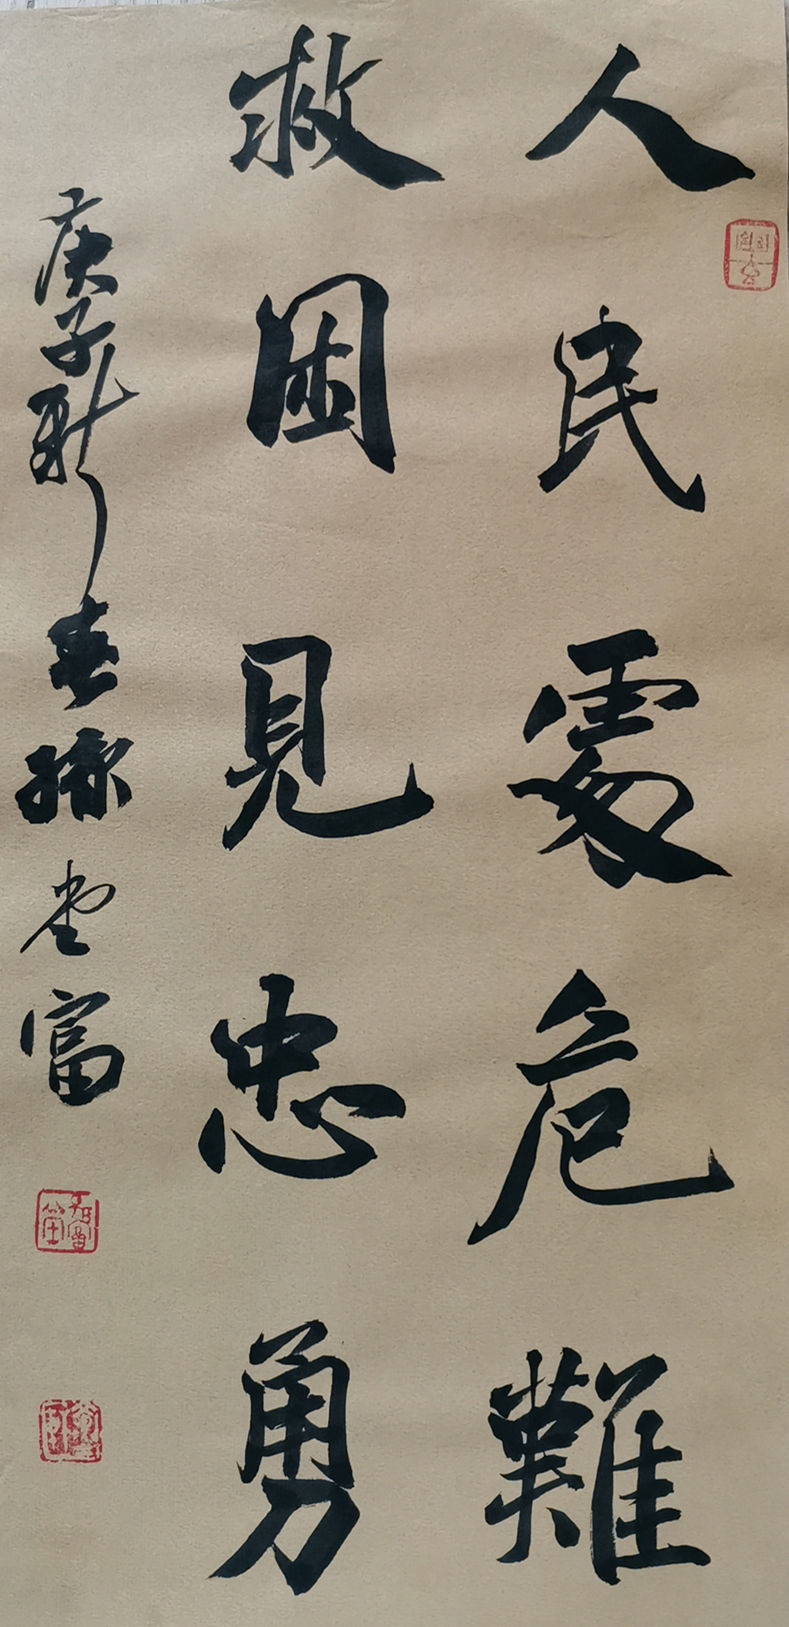 人民處危難
救國見忠勇
庚子新春孫堂富